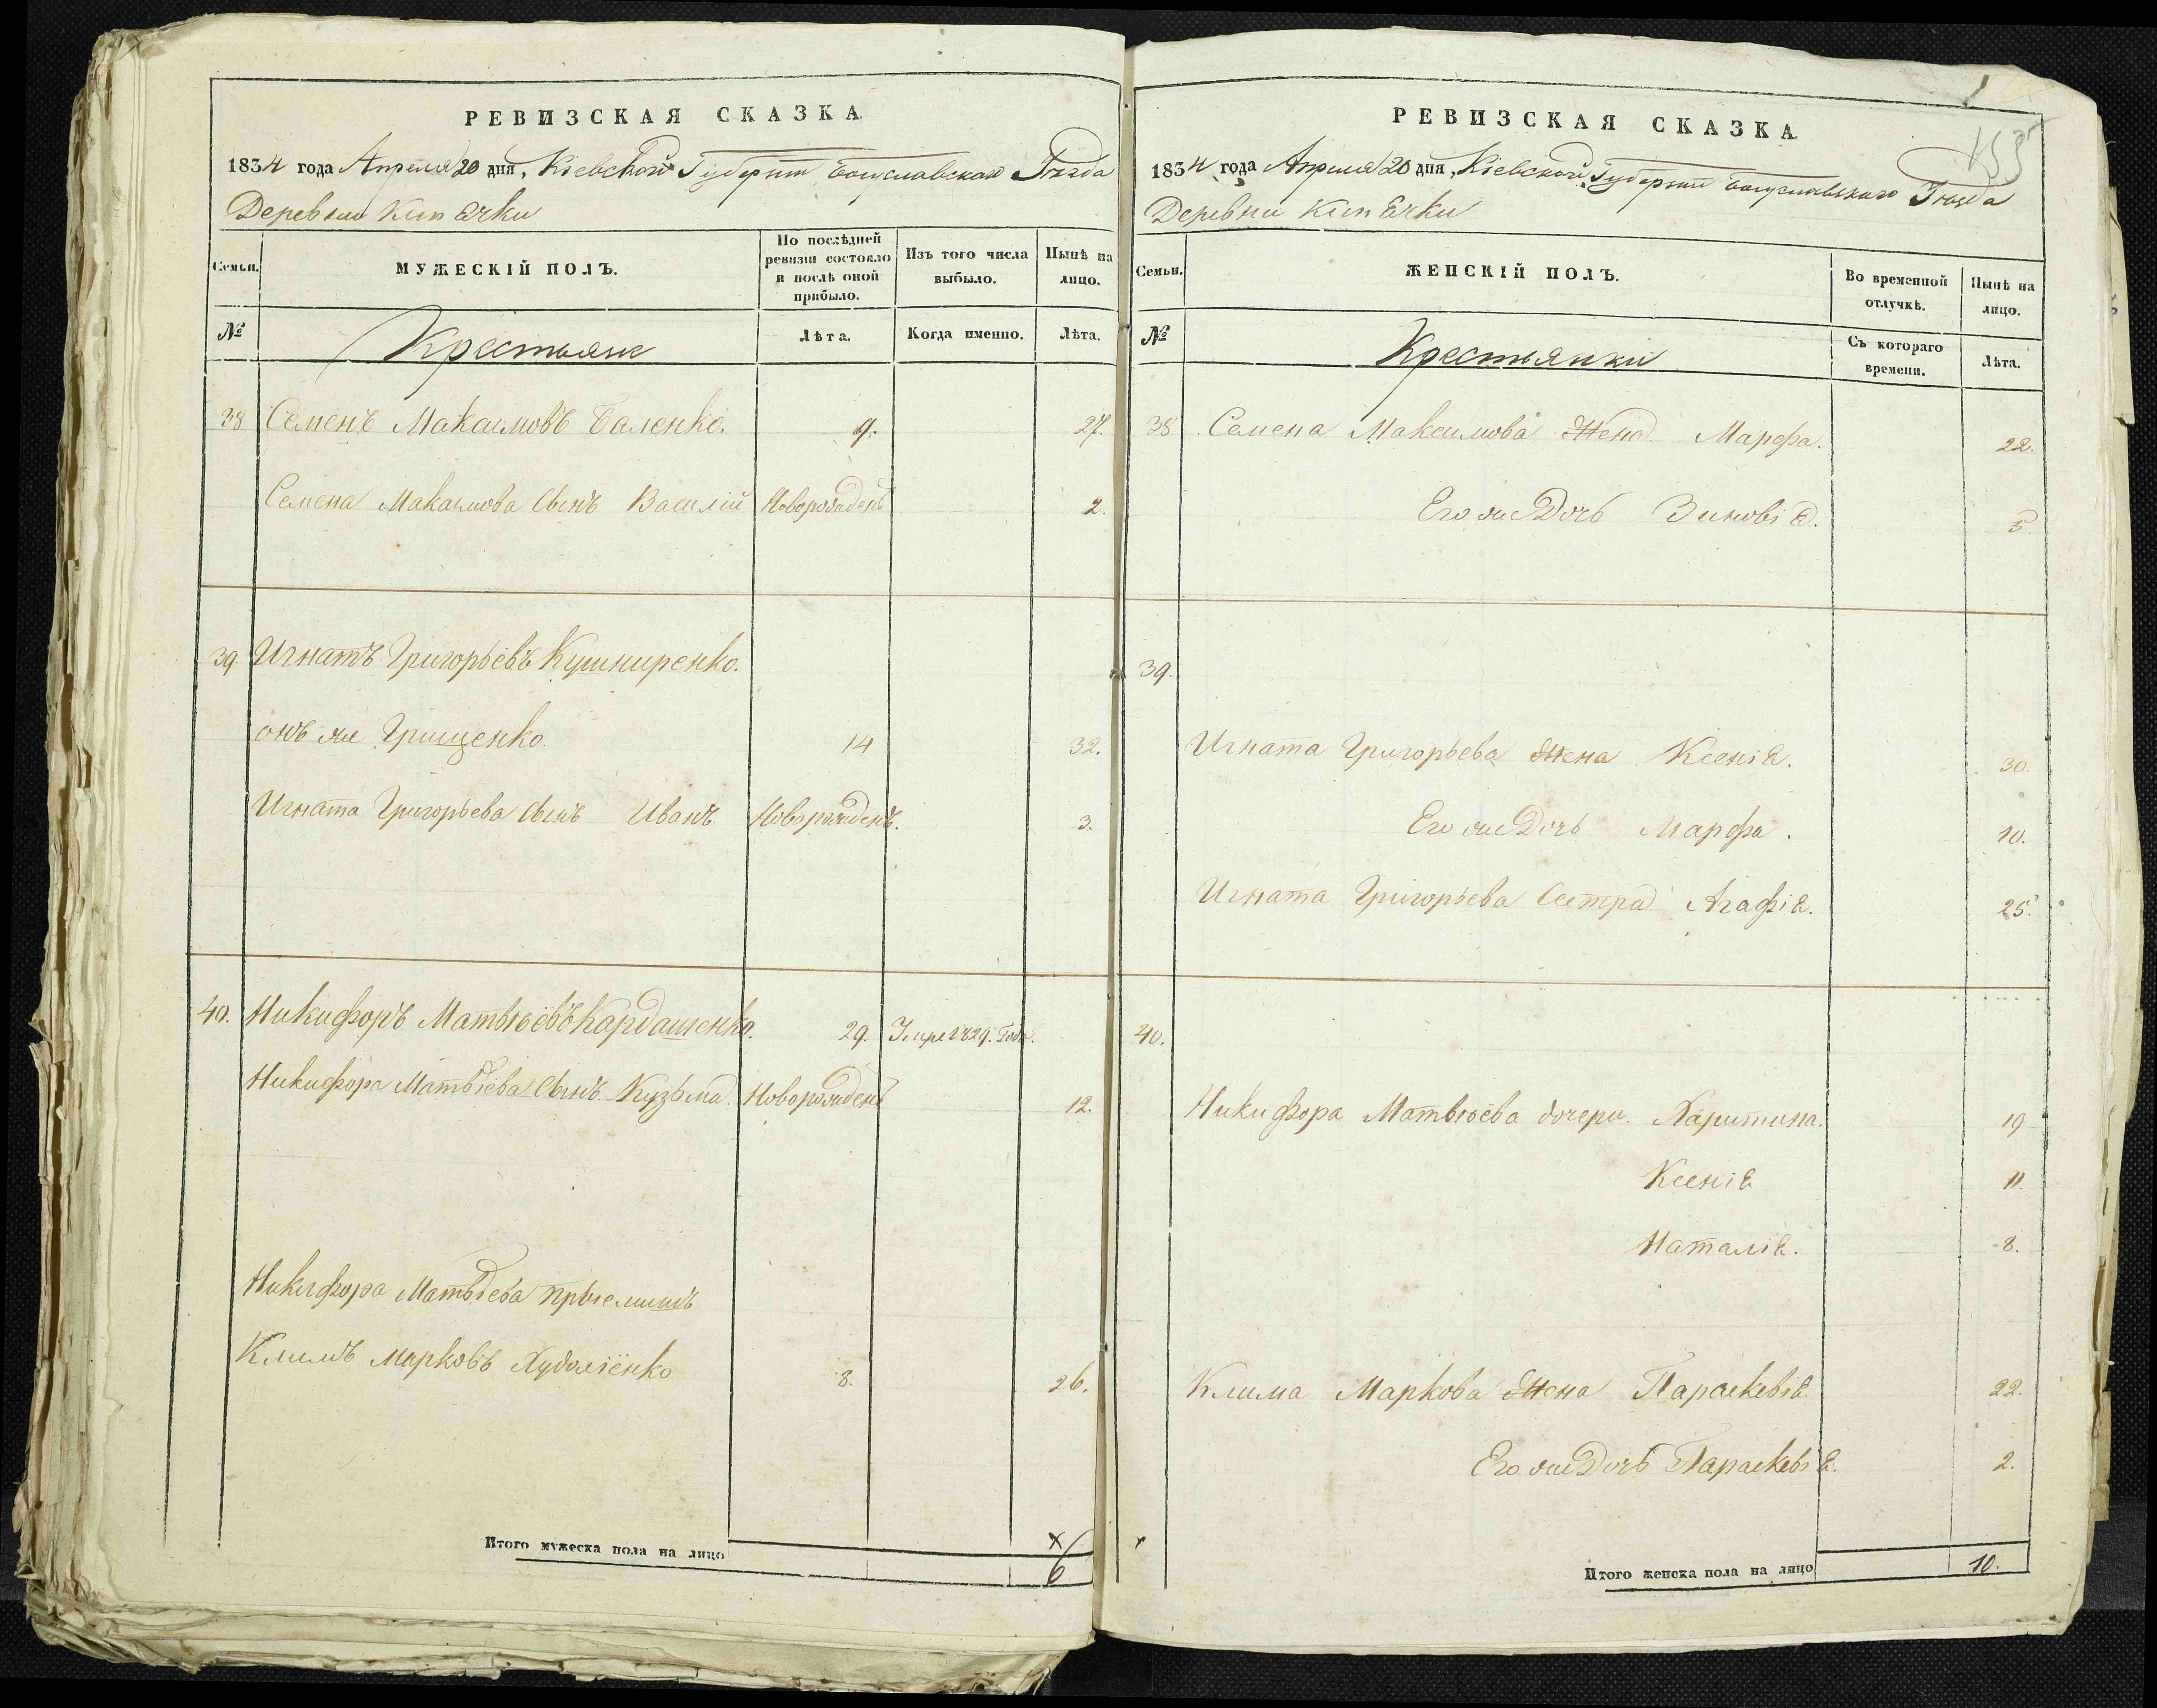 РЕВИЗСКАЯ СКАЗКА
1834 года Апреля 20 дня, Кіевской Губерніи Богуславскаго Уезда
Деревни Кипѣчки
Семьи.
МУЖЕСКІЙ ПОЛЪ.
По послѣдней ревизіи состояло и послѣ оной прибыло.
Изъ того числа выбыло.
Нынѣ на лицо.
№
Крестьяне
Лѣта.
Когда именно.
Лѣта.
38 Семенъ Максимовъ Баленко. 9. 27.
Семена Максимова Сынъ Василій Новорожденъ 2.
39 Игнатъ Григорьевъ Кушниренко.
онъ же Грищенко. 14 32.
Игната Григорьева Сынъ Иванъ Новорожденъ. 3.
40. Никифоръ Матвѣевъ Кардашенко. 29. Умре 1829. Года.
Никифора Матвѣева Сынъ Кузьма Новорожденъ 12.
Никифора Матвѣева
Климъ Марковъ 8. 26.
Итого мужеска пола на лицо 6
РЕВИЗСКАЯ СКАЗКА
1834 года Апреля 20 дня, Кіевской Губерніи Богуславскаго Уезда
Деревни
Семьи.
ЖЕНСКІЙ ПОЛЪ.
Во временной отлучкѣ.
Нынѣ на лицо.
№
Крестьянки
Съ котораго времени.
Лѣта.
38 Семена Максимова Жена Марфа. 22.
Его же Дочь Зиновія. 5
39.
Игната Григорьева Жена Ксенія. 30.
Его же Дочь Марфа. 10.
Игната Григорьева Сестра Агафія. 25.
40.
Никифора Матвѣева дочери. Харитина. 19
Ксенія 11.
Наталія. 8.
Клима Маркова Жена Параскевія 22.
Его же Дочь Параскевія. 2.
Итого женска пола на лицо 10.